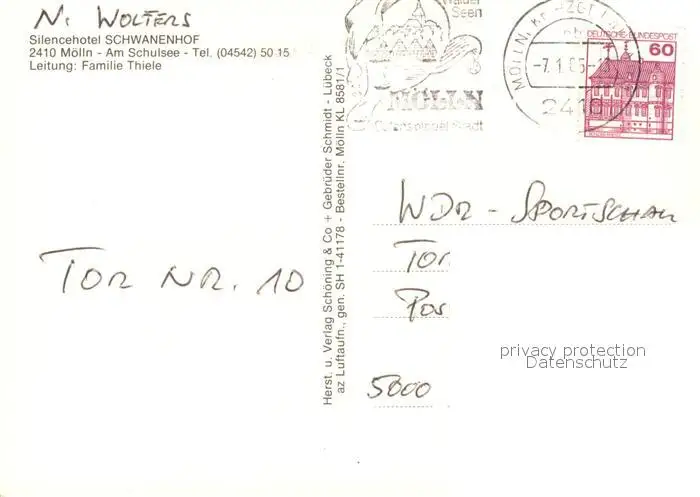 N. WOLTERS
Silencehotel SCHWANENHOF
2410 Mölln - Am Schulsee - Tel. (04542) 50 15
Leitung: Familie Thiele
TOR NR. 10
Herst. u. Verlag Schöning & Co + Gebrüder Schmidt - Lübeck
az Luftaufn., gen. SH 1-41178 - Bestellnr. Mölln KL 8581/1
Wälder
Seen
MÖLLN
Eulenspiegel Stadt
MÖLLN
-7.1.85-
2410
DEUTSCHE BUNDESPOST
60
WDR - SPORTSCHAU
TOR
Pos
5000
privacy protection
Datenschutz